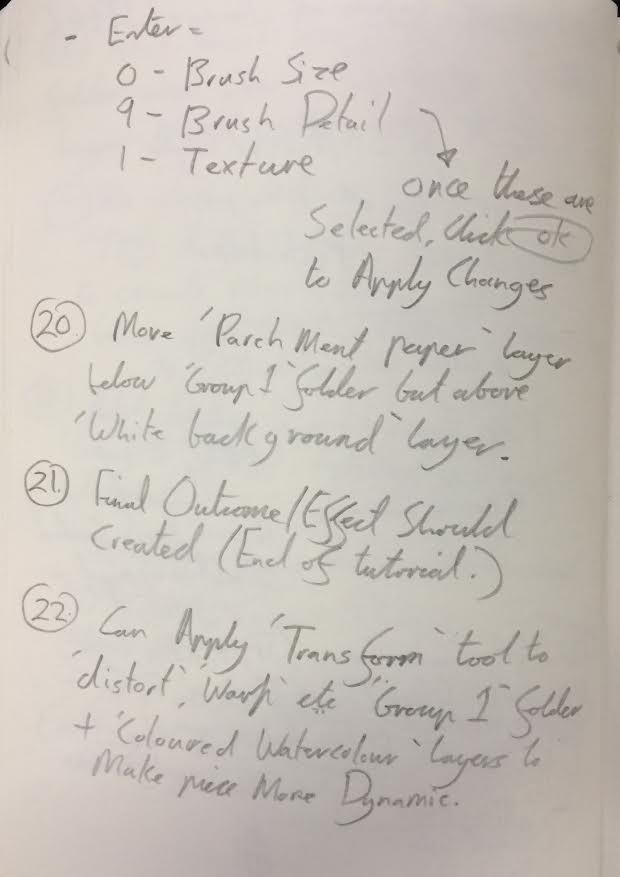 - Enter =
0 - Brush Size
9 - Brush Detail
1 - Texture
once these are
Selected, Click ok
to Apply Changes
20. Move 'Parchment paper' layer
below 'Group 1' folder but above
'White background' layer.
21. Final Outcome/Effect Should
Created (End of tutorial.)
22. Can Apply 'Transform' tool to
'distort', 'Warp' etc 'Group 1' folder
+ 'Coloured Watercolour' layers to
Make piece More Dynamic.